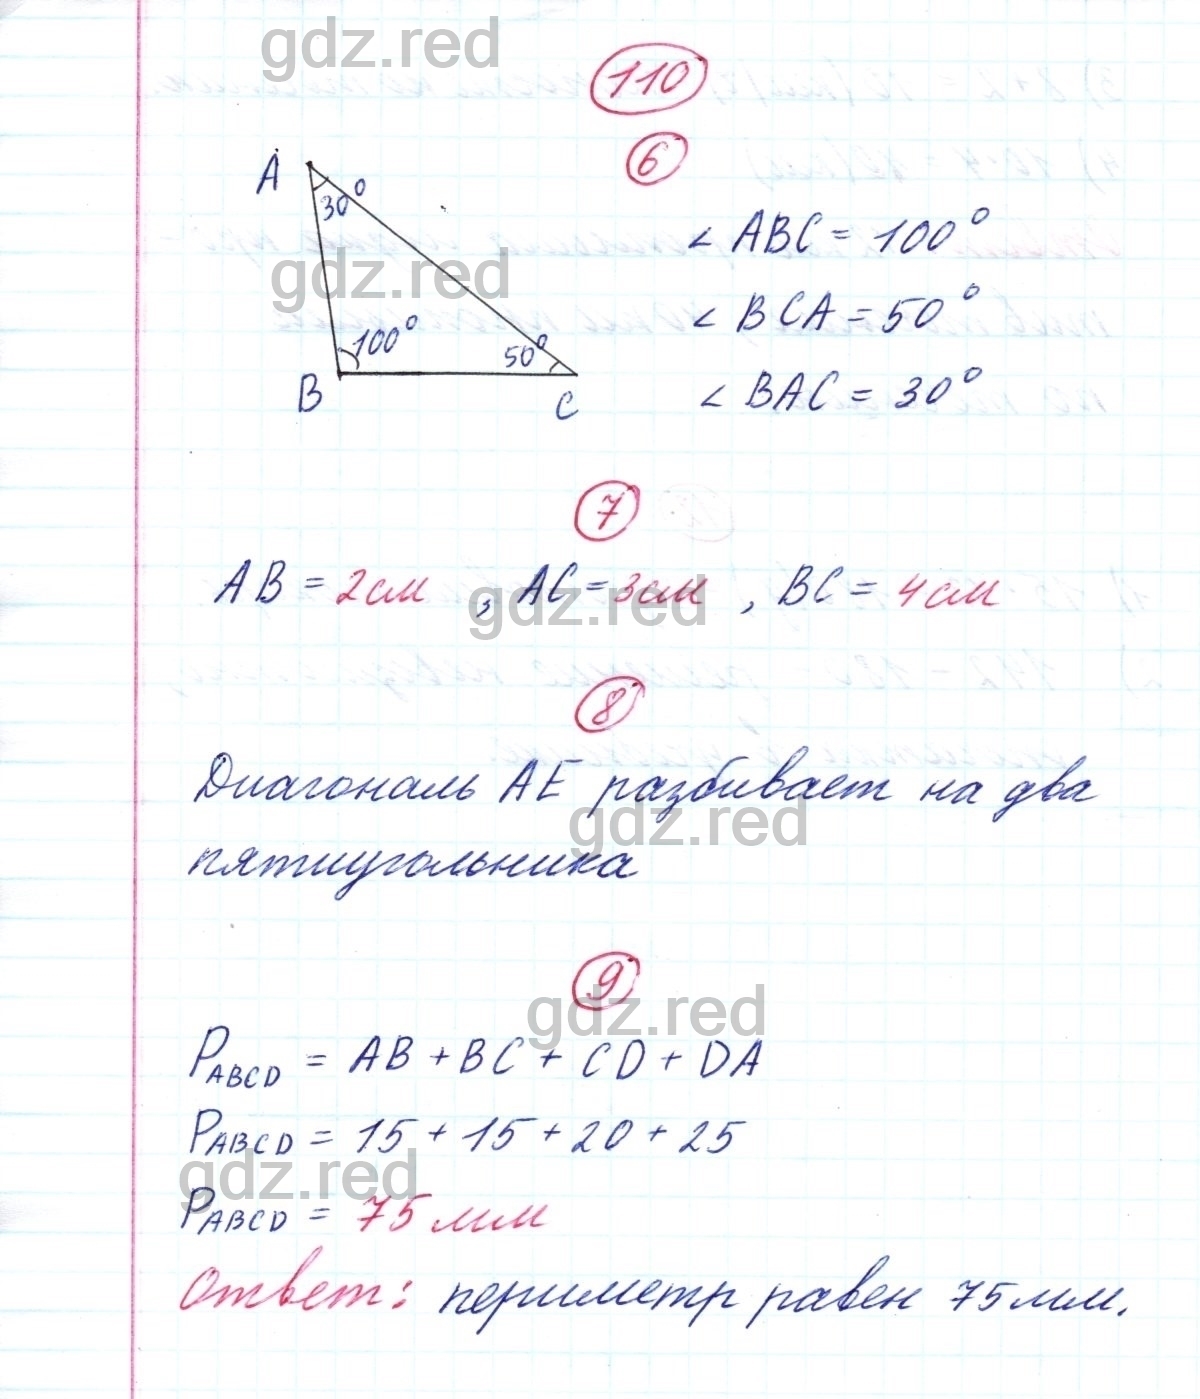 gdz.red
110
6
A
30°
∠ ABC = 100°
gdz.red
∠ BCA = 50°
100°
50°
B
C
∠ BAC = 30°
7
AB = 2см , AC = 3см , BC = 4см
gdz.red
8
Диагональ AE разбивает на два
gdz.red
пятиугольника
9
gdz.red
PABCD = AB + BC + CD + DA
PABCD = 15 + 15 + 20 + 25
gdz.red
PABCD = 75 мм
Ответ: периметр равен 75 мм.